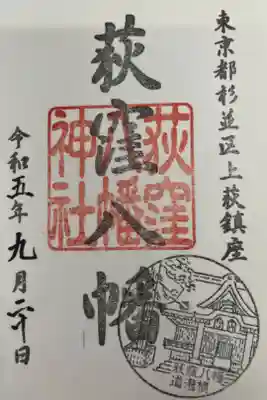 東京都杉並区上荻鎮座
荻窪八幡
荻窪
八幡
神社
令和五年九月二十日